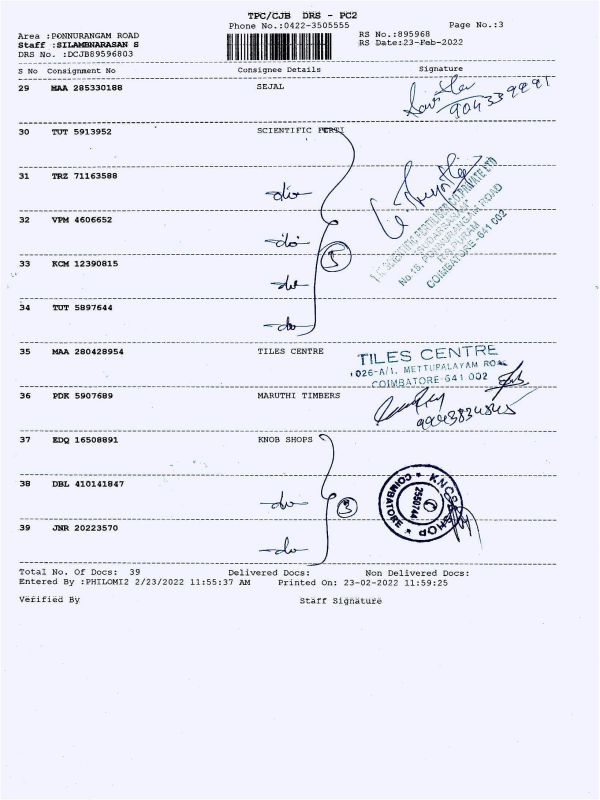 TPC/CJB DRS - PC2
Phone No.:0422-3505555 Page No.:3
Area :PONNURANGAM ROAD RS No.:895968
Staff :SILAMBNARASAN S RS Date:23-Feb-2022
DRS No. :DCJB89596803
S No Consignment No Consignee Details Signature
29 MAA 285330188 SEJAL
9043399991
30 TUT 5913952 SCIENTIFIC FERTI
31 TRZ 71163588 do
32 VPM 4606652 do
33 KCM 12390815 do
34 TUT 5897644 do
5
No.16, PONNURANGAR ROAD
R.S.PURAM
COIMBATORE-641 002
35 MAA 280428954 TILES CENTRE
TILES CENTRE
1026-A/1, METTUPALAYAM ROAD
COIMBATORE-641 002
36 PDK 5907689 MARUTHI TIMBERS
37 EDQ 16508891 KNOB SHOPS
38 DBL 410141847 do
39 JNR 20223570 do
3
COIMBATORE
2550744
Total No. Of Docs: 39 Delivered Docs: Non Delivered Docs:
Entered By :PHILOMI2 2/23/2022 11:55:37 AM Printed On: 23-02-2022 11:59:25
Verified By Staff Signature